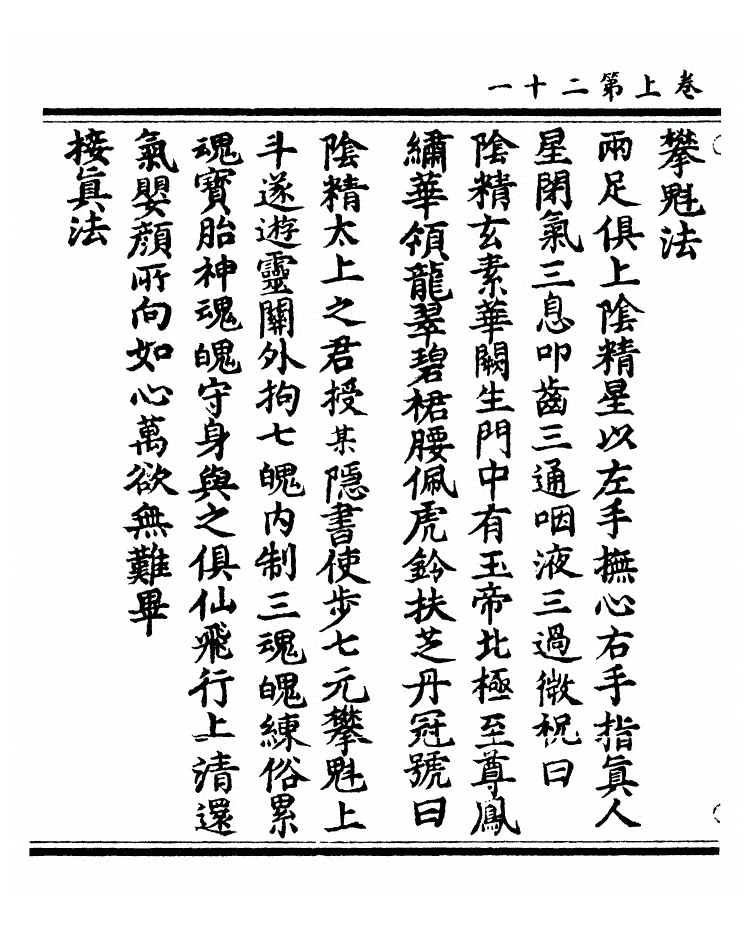 卷上第二十一
攀魁法
兩足俱上陰精星以左手撫心右手指眞人
星閉氣三息叩齒三通咽液三過微祝曰
陰精玄素華闕生門中有玉帝北極至尊鳳
繡華領龍翠碧裙腰佩虎鈴扶芝丹冠號曰
陰精太上之君授某隱書使步七元攀魁上
斗遂遊靈關外拘七魄內制三魂魄練俗累
魂寶胎神魂魄守身與之俱仙飛行上清還
氣嬰顏所向如心萬欲無難畢
接眞法